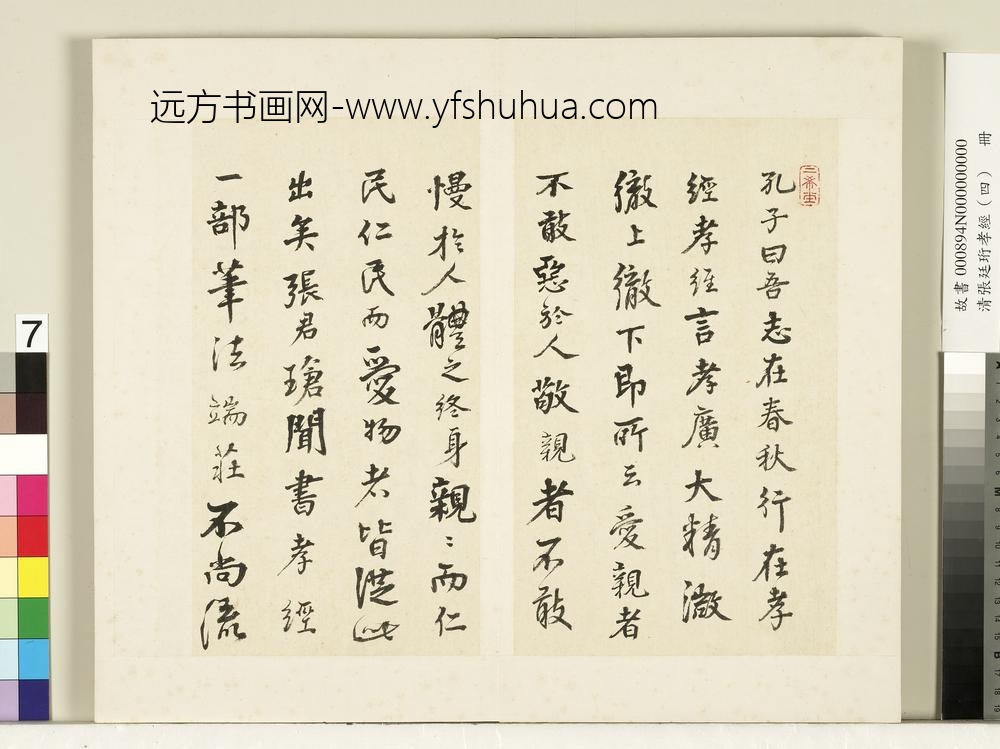 远方书画网-www.yfshuhua.com
三希堂
孔子曰吾志在春秋行在孝
經孝經言孝廣大精微
徹上徹下即所云愛親者
不敢惡於人敬親者不敢
慢於人體之終身親〻而仁
民仁民而愛物者皆從此
出矣張君瑭聞書孝經
一部筆法端莊不尚流
故書 000894N000000000
清張廷珩孝經（四） 冊
7